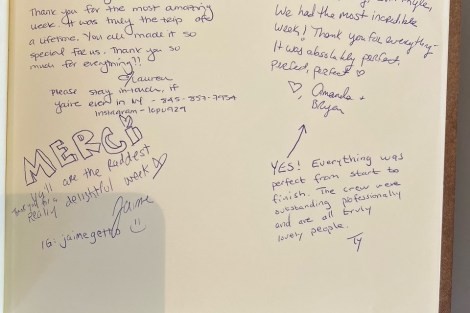 Thank you for the most amazing
week. It was truly the trip of
a lifetime. You all made it so
special for us. Thank you so
much for everything!!
Lauren
Please stay in touch, if
you're ever in NY -
Instagram -
MERCI
Y'all are the raddest
Thank you for a
really delightful week
Jaime
IG: jaimegetto
We had the most incredible
week! Thank you for everything -
It was absolutely perfect,
perfect, perfect
Amanda +
Bryan
YES! Everything was
perfect from start to
finish. The crew were
outstanding professionally
and are all truly
lovely people.
Ty